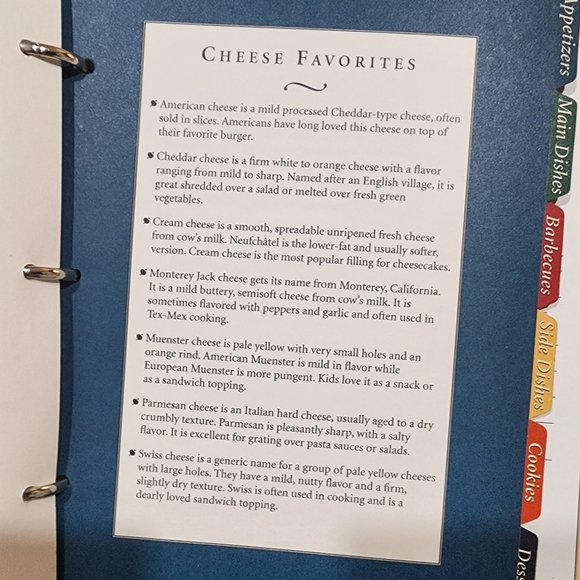 CHEESE FAVORITES
American cheese is a mild processed Cheddar-type cheese, often
sold in slices. Americans have long loved this cheese on top of
their favorite burger.
Cheddar cheese is a firm white to orange cheese with a flavor
ranging from mild to sharp. Named after an English village, it is
great shredded over a salad or melted over fresh green
vegetables.
Cream cheese is a smooth, spreadable unripened fresh cheese
from cow's milk. Neufchâtel is the lower-fat and usually softer,
version. Cream cheese is the most popular filling for cheesecakes.
Monterey Jack cheese gets its name from Monterey, California.
It is a mild buttery, semisoft cheese from cow's milk. It is
sometimes flavored with peppers and garlic and often used in
Tex-Mex cooking.
Muenster cheese is pale yellow with very small holes and an
orange rind. American Muenster is mild in flavor while
European Muenster is more pungent. Kids love it as a snack or
as a sandwich topping.
Parmesan cheese is an Italian hard cheese, usually aged to a dry
crumbly texture. Parmesan is pleasantly sharp, with a salty
flavor. It is excellent for grating over pasta sauces or salads.
Swiss cheese is a generic name for a group of pale yellow cheeses
with large holes. They have a mild, nutty flavor and a firm,
slightly dry texture. Swiss is often used in cooking and is a
dearly loved sandwich topping.
Appetizers
Main Dishes
Barbecues
Side Dishes
Cookies
Des